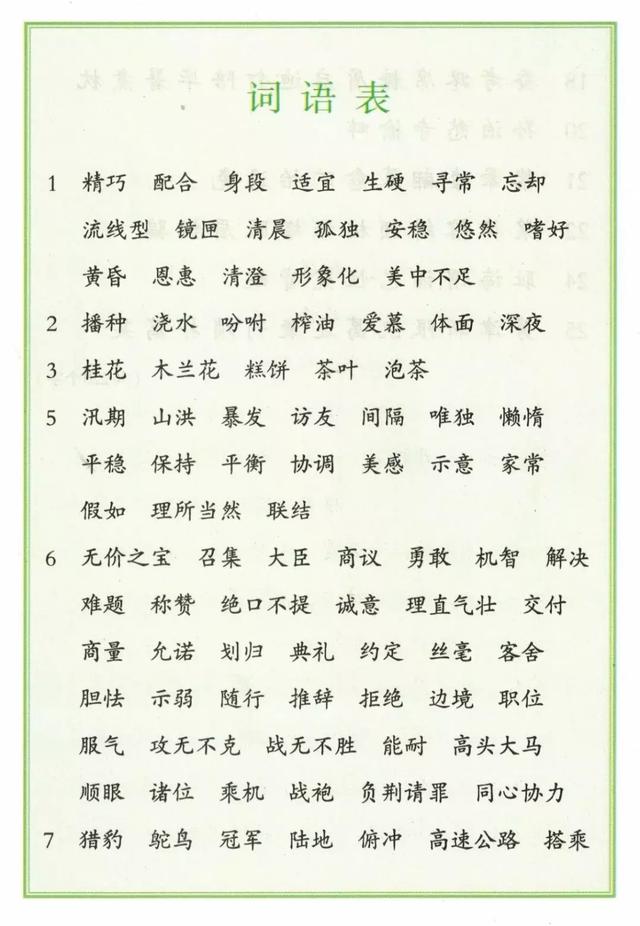 词语表
1 精巧 配合 身段 适宜 生硬 寻常 忘却
流线型 镜匣 清晨 孤独 安稳 悠然 嗜好
黄昏 恩惠 清澄 形象化 美中不足
2 播种 浇水 吩咐 榨油 爱慕 体面 深夜
3 桂花 木兰花 糕饼 茶叶 泡茶
5 汛期 山洪 暴发 访友 间隔 唯独 懒惰
平稳 保持 平衡 协调 美感 示意 家常
假如 理所当然 联结
6 无价之宝 召集 大臣 商议 勇敢 机智 解决
难题 称赞 绝口不提 诚意 理直气壮 交付
商量 允诺 划归 典礼 约定 丝毫 客舍
胆怯 示弱 随行 推辞 拒绝 边境 职位
服气 攻无不克 战无不胜 能耐 高头大马
顺眼 诸位 乘机 战袍 负荆请罪 同心协力
7 猎豹 鸵鸟 冠军 陆地 俯冲 高速公路 搭乘